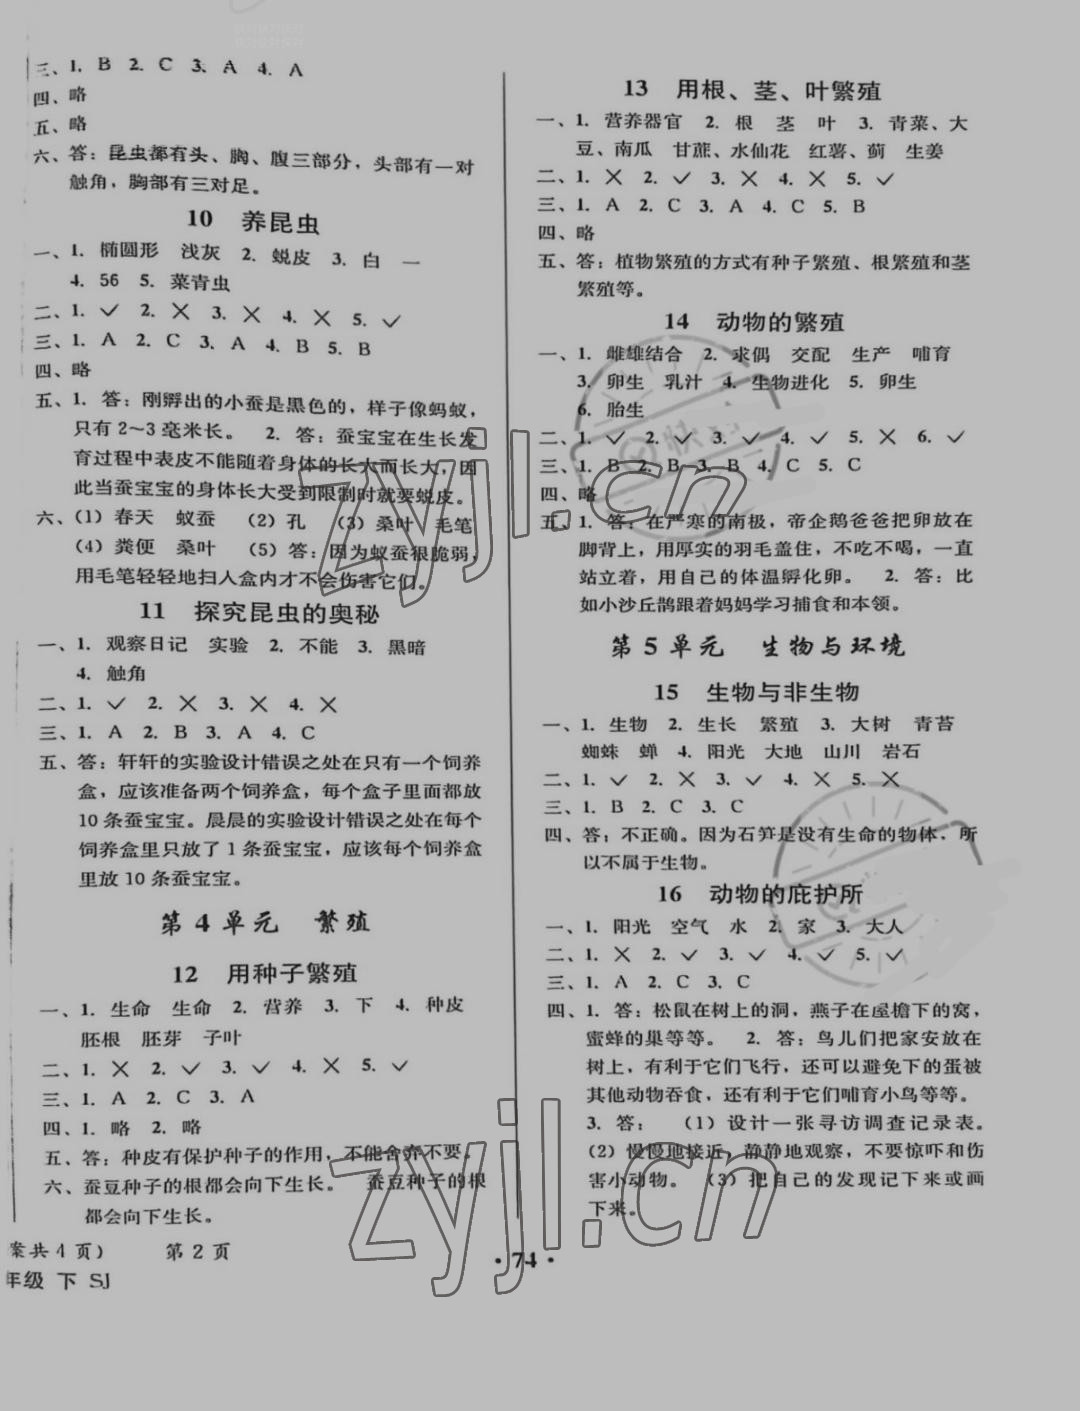 三、1. B 2. C 3. A 4. A
四、略
五、略
六、答：昆虫都有头、胸、腹三部分，头部有一对
触角，胸部有三对足。
10 养昆虫
一、1. 椭圆形 浅灰 2. 蜕皮 3. 白 一
4. 56 5. 菜青虫
二、1. ✓ 2. ✕ 3. ✕ 4. ✕ 5. ✓
三、1. A 2. C 3. A 4. B 5. B
四、略
五、1. 答：刚孵出的小蚕是黑色的，样子像蚂蚁，
只有 2～3 毫米长。 2. 答：蚕宝宝在生长发
育过程中表皮不能随着身体的长大而长大，因
此当蚕宝宝的身体长大受到限制时就要蜕皮。
六、(1) 春天 蚁蚕 (2) 孔 (3) 桑叶 毛笔
(4) 粪便 桑叶 (5) 答：因为蚁蚕很脆弱，
用毛笔轻轻地扫入盒内才不会伤害它们。
11 探究昆虫的奥秘
一、1. 观察日记 实验 2. 不能 3. 黑暗
4. 触角
二、1. ✓ 2. ✕ 3. ✕ 4. ✕
三、1. A 2. B 3. A 4. C
五、答：轩轩的实验设计错误之处在只有一个饲养
盒，应该准备两个饲养盒，每个盒子里面都放
10 条蚕宝宝。晨晨的实验设计错误之处在每个
饲养盒里只放了 1 条蚕宝宝，应该每个饲养盒
里放 10 条蚕宝宝。
第 4 单元 繁殖
12 用种子繁殖
一、1. 生命 生命 2. 营养 3. 下 4. 种皮
胚根 胚芽 子叶
二、1. ✕ 2. ✓ 3. ✓ 4. ✕ 5. ✓
三、1. A 2. C 3. A
四、1. 略 2. 略
五、答：种皮有保护种子的作用，不能舍弃不要。
六、蚕豆种子的根都会向下生长。 蚕豆种子的根
都会向下生长。
案共 4 页） 第 2 页
年级 下 SJ
13 用根、茎、叶繁殖
一、1. 营养器官 2. 根 茎 叶 3. 青菜、大
豆、南瓜 甘蔗、水仙花 红薯、蓟 生姜
二、1. ✕ 2. ✓ 3. ✕ 4. ✕ 5. ✓
三、1. A 2. C 3. A 4. C 5. B
四、略
五、答：植物繁殖的方式有种子繁殖、根繁殖和茎
繁殖等。
14 动物的繁殖
一、1. 雌雄结合 2. 求偶 交配 生产 哺育
3. 卵生 乳汁 4. 生物进化 5. 卵生
6. 胎生
二、1. ✓ 2. ✓ 3. ✓ 4. ✓ 5. ✕ 6. ✓
三、1. B 2. B 3. B 4. C 5. C
四、略
五、1. 答：在严寒的南极，帝企鹅爸爸把卵放在
脚背上，用厚实的羽毛盖住，不吃不喝，一直
站立着，用自己的体温孵化卵。 2. 答：比
如小沙丘鹊跟着妈妈学习捕食和本领。
第 5 单元 生物与环境
15 生物与非生物
一、1. 生物 2. 生长 繁殖 3. 大树 青苔
蜘蛛 蝉 4. 阳光 大地 山川 岩石
二、1. ✓ 2. ✕ 3. ✓ 4. ✕ 5. ✕
三、1. B 2. C 3. C
四、答：不正确。因为石笋是没有生命的物体，所
以不属于生物。
16 动物的庇护所
一、1. 阳光 空气 水 2. 家 3. 大人
二、1. ✕ 2. ✓ 3. ✓ 4. ✓ 5. ✓
三、1. A 2. C 3. C
四、1. 答：松鼠在树上的洞，燕子在屋檐下的窝，
蜜蜂的巢等等。 2. 答：鸟儿们把家安放在
树上，有利于它们飞行，还可以避免下的蛋被
其他动物吞食，还有利于它们哺育小鸟等等。
3. 答： (1) 设计一张寻访调查记录表。
(2) 慢慢地接近，静静地观察，不要惊吓和伤
害小动物。 (3) 把自己的发现记下来或画
下来。
· 74 ·
zyjl.cn
zyjl.cn